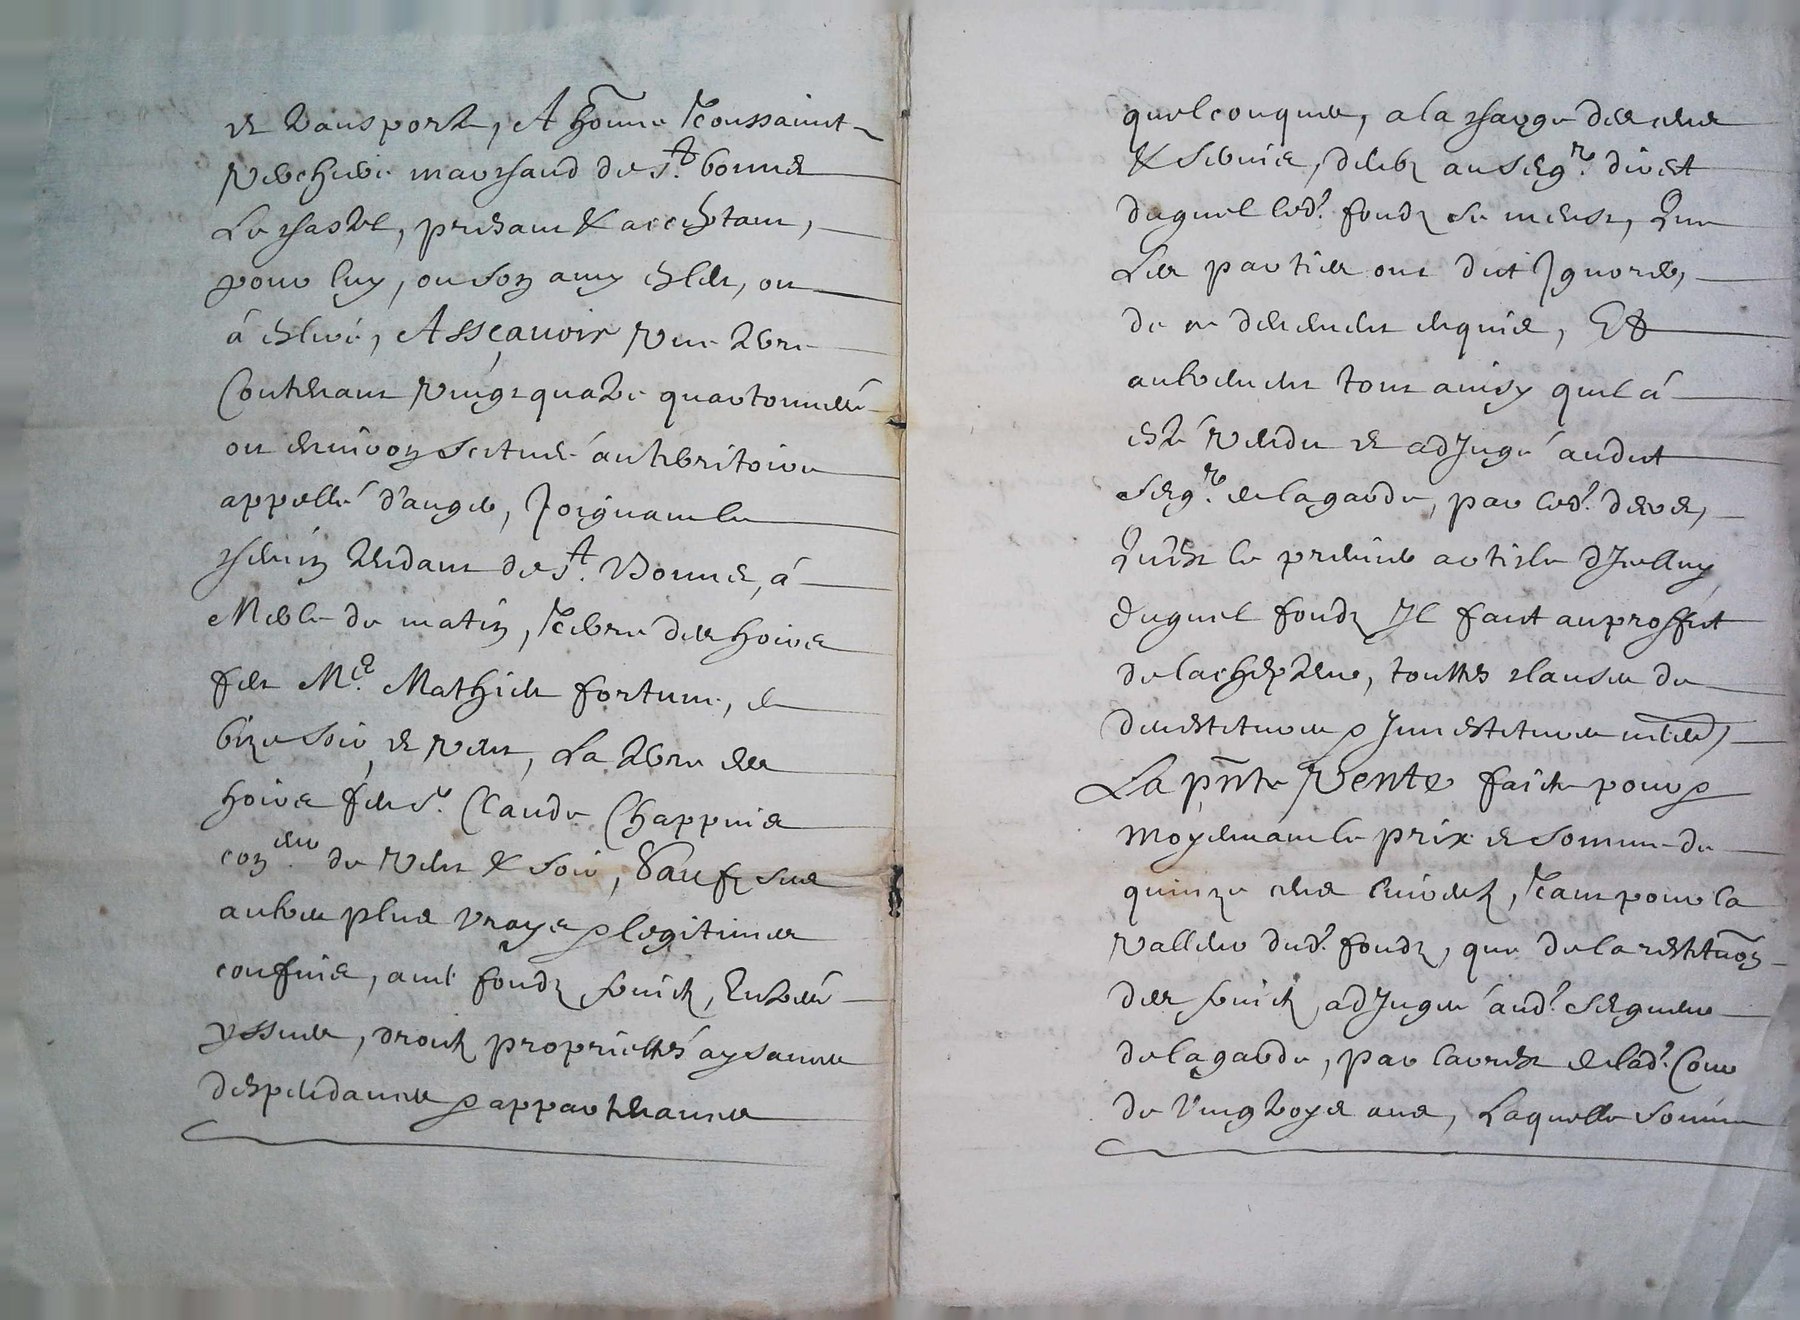 et transport, A honne Toussainct
Vercherie marchand de St. bonnet
Le chastel, present & acceptant,
pour luy, ou son amy esleu, ou
á eslire, Assçauoir Vne terre
Contenant Vingt quatre quartonnées
ou enuiron scitueé au territoire
appellé d'anger, Joignant le
chemin tendant de St. Bonnet, á
de matin, terre des hoirs
feu Me. Mathieu fortune, de
bize soir, et vent, La terre des
hoirs feu sr. Claude Chappuis
de vent & soir, Sauf ses
autres plus vrays & legitimes
confins, auec fondz fruictz, Entrées
yssues, droictz proprietés aysances
despendances & appartenances
quelconques, a la charge des cens
& seruis, deubz au seigr. direct
duquel led. fondz se meust, Que
Les parties ont dict Jgnorer,
de ce deuement enquis, Et
autrement tout ainsy quil á
esté vendu et adJugé audict
seigr. de lagarde, par led. decret,
Quest le premier article dJcelluy
Duquel fondz Jl faict au proffict
de lachepteur, touttes clauses de
deuestiture & Jnuestiture
La pnte Vente faicte pour &
moyenant le prix et somme de
quinze cens liures, tant pour la
valleur dud. fondz, que de la restituon
des fruictz adJugés aud. seigneur
de lagarde, par larrest de lad. Cour
de Vingt trois ans, Laquelle somme